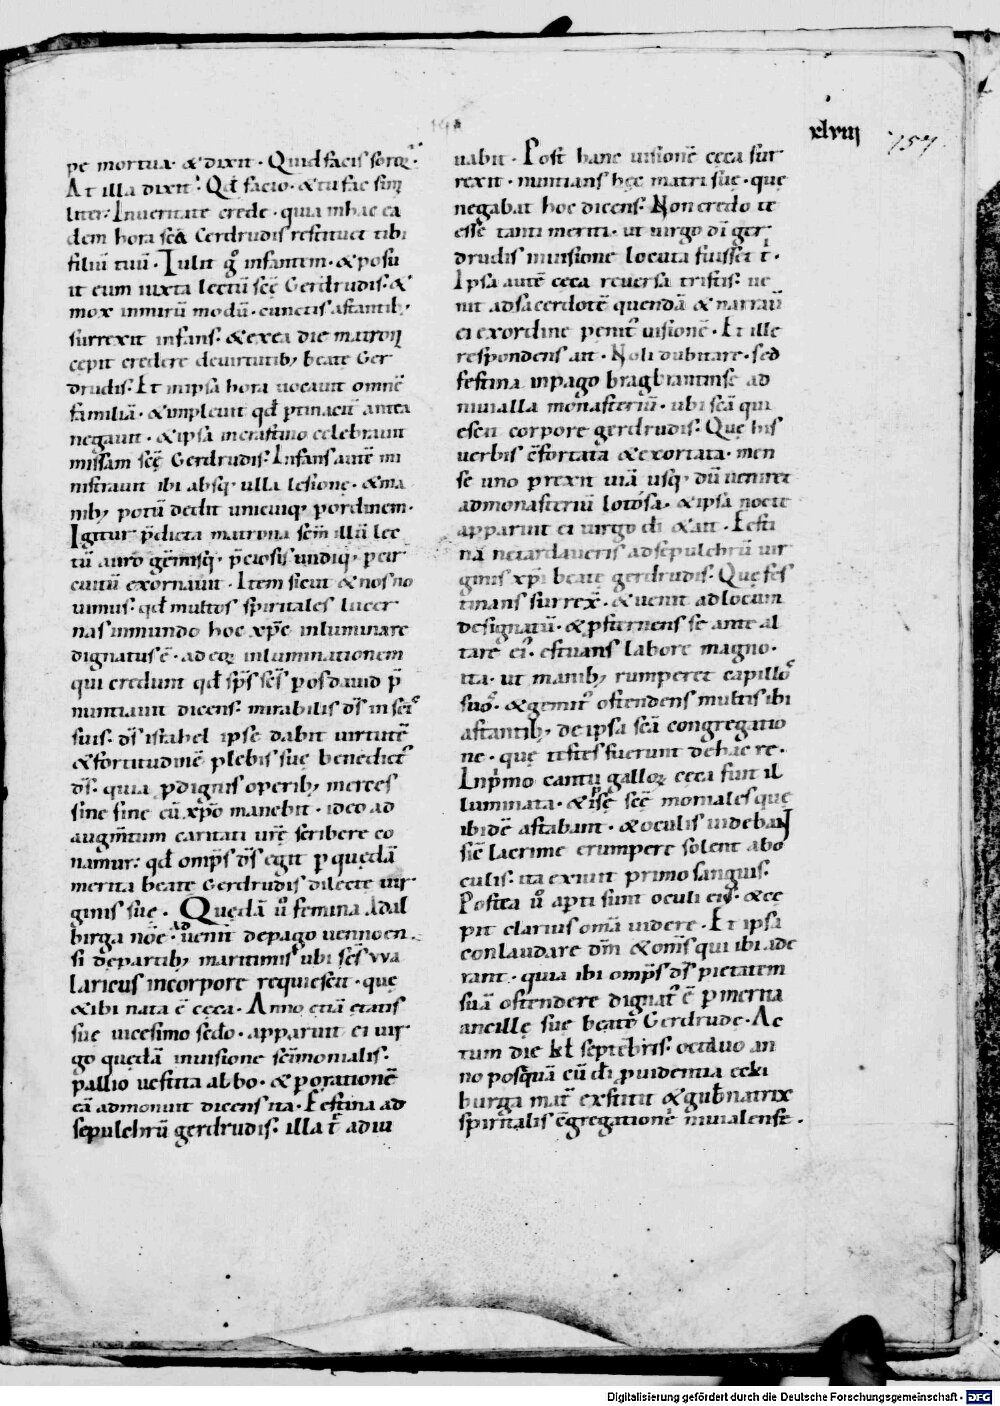 xlviii
157.
pe mortua · & dixit · Quid facis soror.
At illa dixit: Qd̄ facio · & tu fac simi
liter: In ueritate crede · quia in hac ea
dem hora sc̄a Gerdrudis restituet tibi
filiū tuū · Tulit g̊ infantem · & posu
it eum iuxta lectū sc̄ę Gerdrudis · &
mox in mirū modū · cunctis astantib;
surrexit infans · & ex ea die matrona
cepit credere de uirtutib; beate Ger
drudis: Et in ipsa hora uocauit omnē
familiā · & impleuit qd̄ ptinaciū antea
negauit · & ipsā in crastino celebrauit
missam sc̄ę Gerdrudis: Infans autē mi
nistrauit ibi absq; ulla lesione · & ma
nib; potū dedit unicuiq; p ordinem ·
Igitur p̄dicta matrona sc̄m illū lec
tū auro gēmisq; p̄ciosis undiq; p cir
cuitū exornauit · Item sicut & nos no
uimus · qd̄ multos spiritales lucer
nas in mundo hoc xp̄c inluminare
dignatus ē · ad eoꝝ inluminationem
qui credunt qd̄ sp̄s sc̄s p os dauid p̄
nuntiauit dicens: mirabilis ds̄ in sc̄is
suis · ds̄ israhel ipse dabit uirtutē
& fortitudinē plebis suę benedict᾽
ds̄ · quia p dignis operib; merces
sine fine cū xp̄o manebit · ideo ad
augm̄tum caritati urę̄ scribere co
namur: qd̄ omp̄s ds̄ egit p quędā
merita beate Gerdrudis dilecte uir
ginis suę · Quędā ů femina Adal
birga nōe · uenit de pago uennoen
si de partib; maritimis ubi sc̄s vva
laricus in corpore requiescit · que
& ibi nata ē cęca · Anno etiā etatis
sue uicesimo sc̄do · apparuit ei uir
go quędā in uisione sc̄imonialis ·
pallio uestita albo · & p orationē
eā admonuit dicens ita · Festina ad
sepulchrū gerdrudis · illa t̄ adiu
uabit · Post hanc uisionē cęca sur
rexit · nuntians hęc matri suę · quę
negabat hoc dicens: Non credo te
esse tanti meriti · ut uirgo dī ger
drudis in uisione locuta fuisset t̄ ·
Ipsa autē cęca reuersa tristis · ue
nit ad sacerdotē quendā & narrau̅
ei ex ordine penit᾽ uisionē · Et ille
respondens ait · Noli dubitare · sed
festina in pago bragbrantinse ad
niuialla monasteriū · ubi sc̄a qui
escit corpore gerdrudis: Quę his
uerbis c̄fortata & exortata · men
se uno prexit uiā usq; dū ueniret
ad monasteriū lotosa · & ipsa nocte
apparuit ei uirgo dī & ait · Festi
na ne tardaueris ad sepulchrū uir
ginis xp̄i beate gerdrudis: Quę fes
tinans surrex̄ · & uenit ad locum
designatū · & psternens se ante al
tare ei᾽ · estuans labore magno ·
ita · ut manib; rumperet capillos
suos · & gemit᾽ ostendens multis ibi
astantib; de ipsa sc̄a congregatio
ne · quę testes fuerunt de hac re ·
In primo cantu galloꝝ cęca fuit il
luminata · & ipsę sc̄ę moniales quę
ibidē astabant · & oculis uidebant
sic̄ lacrime erumpere solent ab o
culis · ita exiuit primo sanguis ·
Postea ů apti sunt oculi ei᾽ · & cę
pit clarius omā uidere · Et ipsa
conlaudare dm̄ & om̄s qui ibi ade
rant · quia ibi omp̄s ds̄ pietatem
suā ostendere dignat᾽ ē p merita
ancillę suę beatę Gerdrude · Ac
tum die kl̄ septēbris · octauo an
no posquā cū dī puidentia ecki
burga mat̄ extitit & gub̄natrix
spiritalis c̄gregationē niuialense ·
Digitalisierung gefördert durch die Deutsche Forschungsgemeinschaft - DFG